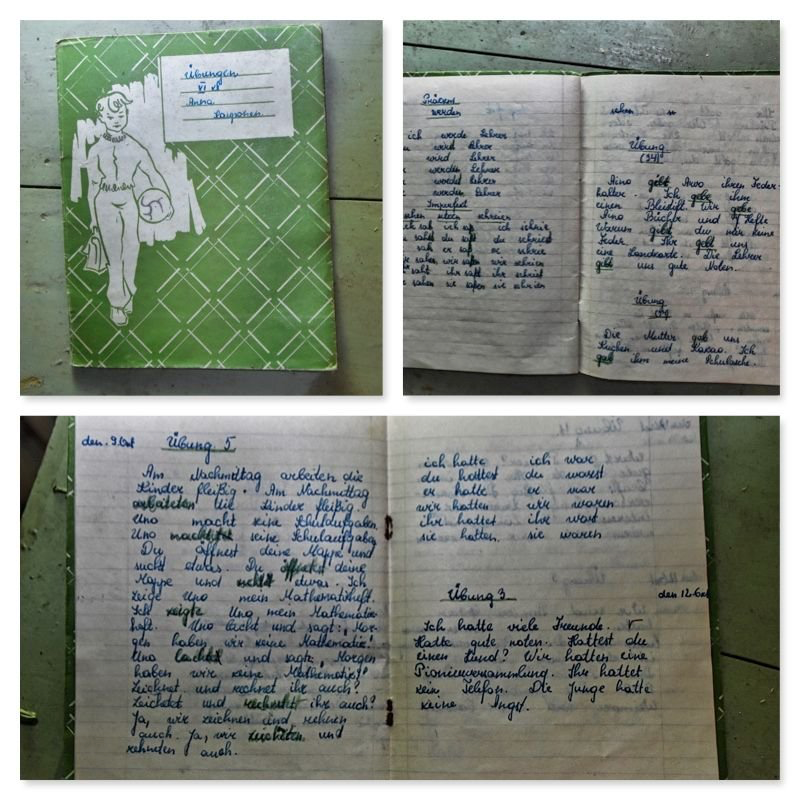 Übungen
VI
Anna
Präsens
werden
ich werde Lehrer
wird Lehrer
wird Lehrer
werden Lehrer
werdet Lehrer
werden Lehrer
Imperfect
sehen sitzen schreien
ich sah ich saß ich schrie
sahst du saßt du schriest
sah er saß er schrie
sahen wir saßen wir schrien
saht ihr saßt ihr schriet
sahen sie saßen sie schrien
sehen
Übung
Aino gibt Arvo ihren Feder-
halter. Ich gebe ihm
einen Bleistift. Wir geben
Aino Bücher und Hefte
Warum gibst du mir keine
Feder. Ihr gebt uns
eine Landkarde. Die Lehrer
gibt uns gute Noten.
Übung
Die Mutter gab uns
Kuchen und Kakao. Ich
gab ihm meine Schultasche.
den. 9. Okt
Übung 5
Am Nachmittag arbeiten die
Kinder fleißig. Am Nachmittag
arbeiteten die Kinder fleißig.
Uno macht seine Schulaufgaben.
Uno machtete seine Schulaufgaben
Du öffnest deine Mappe und
suchst etwas. Du öffnetest deine
Mappe und etwas. Ich
zeige Uno mein Mathematikheft.
Ich zeigte Uno mein Mathematik-
heft. Uno lacht und sagt: „Mor-
gen haben wir keine Mathematik!
Uno lachte und sagte „Morgen
haben wir keine Mathematik!
Zeichnet und rechnet ihr auch?
Zeichetet und rechnetet ihr auch?
Ja, wir zeichnen und rechnen
auch. Ja, wir zeichneten und
rehnten auch.
ich hatte ich war
du hattest du warst
er hatte er war
wir hatten wir waren
ihr hattet ihr wart
sie hatten. sie waren
Übung 3
den 12. Okt
Ich hatte viele Freunde.
Hatte gute noten. Hattest du
einen Hund? Wir hatten eine
Pionierversammlung. Ihr hattet
kein Telefon. Die Junge hatte
keine Angst.